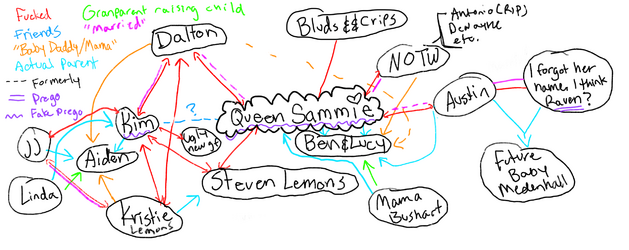 Fucked
Friends
"Baby Daddy/Mama"
Actual Parent
--- Formerly
Prego
Fake Prego
Granparent raising child
"married"
Dalton
Bluds & Crips
NOTW
Antonio (RIP)
Dewayne
etc.
Queen Sammie
Ben & Lucy
Austin
I forgot her
name, I think
Raven?
Kim
?
JJ
Aiden
Linda
Kristie
Lemons
Steven Lemons
Mama
Bushart
Future
Baby
Medenhall